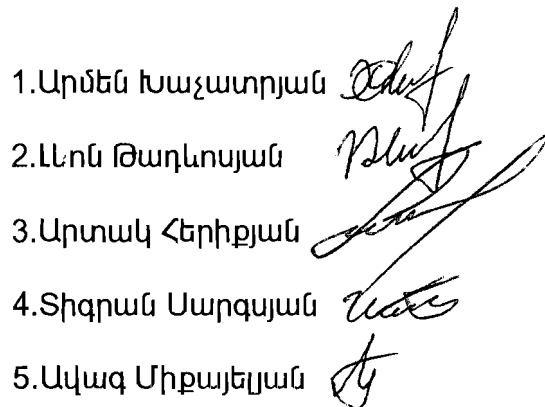 1.Արմեն Խաչատրյան
2.Լևոն Թադևոսյան
3.Արտակ Հերիքյան
4.Տիգրան Սարգսյան
5.Ավագ Միքայելյան